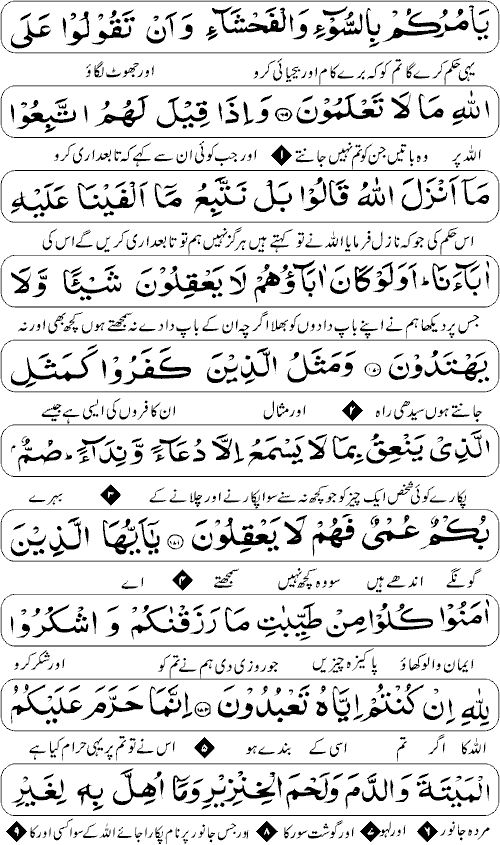 يَاۡمُرُكُمۡ بِالسُّوۡٓءِ وَالۡفَحۡشَآءِ وَاَنۡ تَقُوۡلُوۡا عَلَى
یہی حکم کرے گا تم کو کہ برے کام اور بیحیائی کرو اور جھوٹ لگاؤ
اللّٰهِ مَا لَا تَعۡلَمُوۡنَ ﴿۱۶۹﴾ وَاِذَا قِيۡلَ لَهُمُ اتَّبِعُوۡا
اللہ پر وہ باتیں جن کو تم نہیں جانتے ۱ اور جب کوئی ان سے کہے کہ تابعداری کرو
مَآ اَنۡزَلَ اللّٰهُ قَالُوۡا بَلۡ نَتَّبِعُ مَآ اَلۡفَيۡنَا عَلَيۡهِ
اس حکم کی جو کہ نازل فرمایا اللہ نے تو کہتے ہیں ہرگز نہیں ہم تو تابعداری کریں گے اس کی
اٰبَآءَنَا ؕ اَوَلَوۡ كَانَ اٰبَآؤُهُمۡ لَا يَعۡقِلُوۡنَ شَيۡـًٔا وَّلَا
جس پر دیکھا ہم نے اپنے باپ دادوں کو بھلا اگرچہ ان کے باپ دادے نہ سمجھتے ہوں کچھ بھی اور نہ
يَهۡتَدُوۡنَ ﴿۱۷۰﴾ وَمَثَلُ الَّذِيۡنَ كَفَرُوۡا كَمَثَلِ
جانتے ہوں سیدھی راہ ۲ اور مثال ان کافروں کی ایسی ہے جیسے
الَّذِىۡ يَنۡعِقُ بِمَا لَا يَسۡمَعُ اِلَّا دُعَآءً وَّنِدَآءً ؕ صُمٌّۢ
پکارے کوئی شخص ایک چیز کو جو کچھ نہ سنے سوا پکارنے اور چلانے کے ۳ بہرے
بُكۡمٌ عُمۡىٌ فَهُمۡ لَا يَعۡقِلُوۡنَ ﴿۱۷۱﴾ يٰٓاَيُّهَا الَّذِيۡنَ
گونگے اندھے ہیں سو وہ کچھ نہیں سمجھتے ۴ اے
اٰمَنُوۡا كُلُوۡا مِنۡ طَيِّبٰتِ مَا رَزَقۡنٰكُمۡ وَاشۡكُرُوۡا
ایمان والو کھاؤ پاکیزہ چیزیں جو روزی دی ہم نے تم کو اور شکر کرو
لِلّٰهِ اِنۡ كُنۡتُمۡ اِيَّاهُ تَعۡبُدُوۡنَ ﴿۱۷۲﴾ اِنَّمَا حَرَّمَ عَلَيۡکُمُ
اللہ کا اگر تم اسی کے بندے ہو ۵ اس نے تو تم پر یہی حرام کیا ہے
الۡمَيۡتَةَ وَالدَّمَ وَلَحۡمَ الۡخِنۡزِيۡرِ وَمَآ اُهِلَّ بِهٖ لِغَيۡرِ
مردہ جانور ۶ اور لہو ۷ اور گوشت سور کا ۸ اور جس جانور پر نام پکارا جائے اللہ کے سوا کسی اور کا ۹